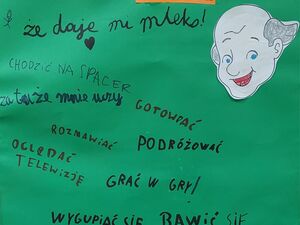 że daje mi mleko!
CHODZIĆ NA SPACER
za to że mnie uczy
GOTOWAĆ
ROZMAWIAĆ
PODRÓŻOWAĆ
OGLĄDAĆ
TELEWIZJĘ
GRAĆ W GRY!
WYGUPIAĆ SIĘ
BAWIĆ SIĘ